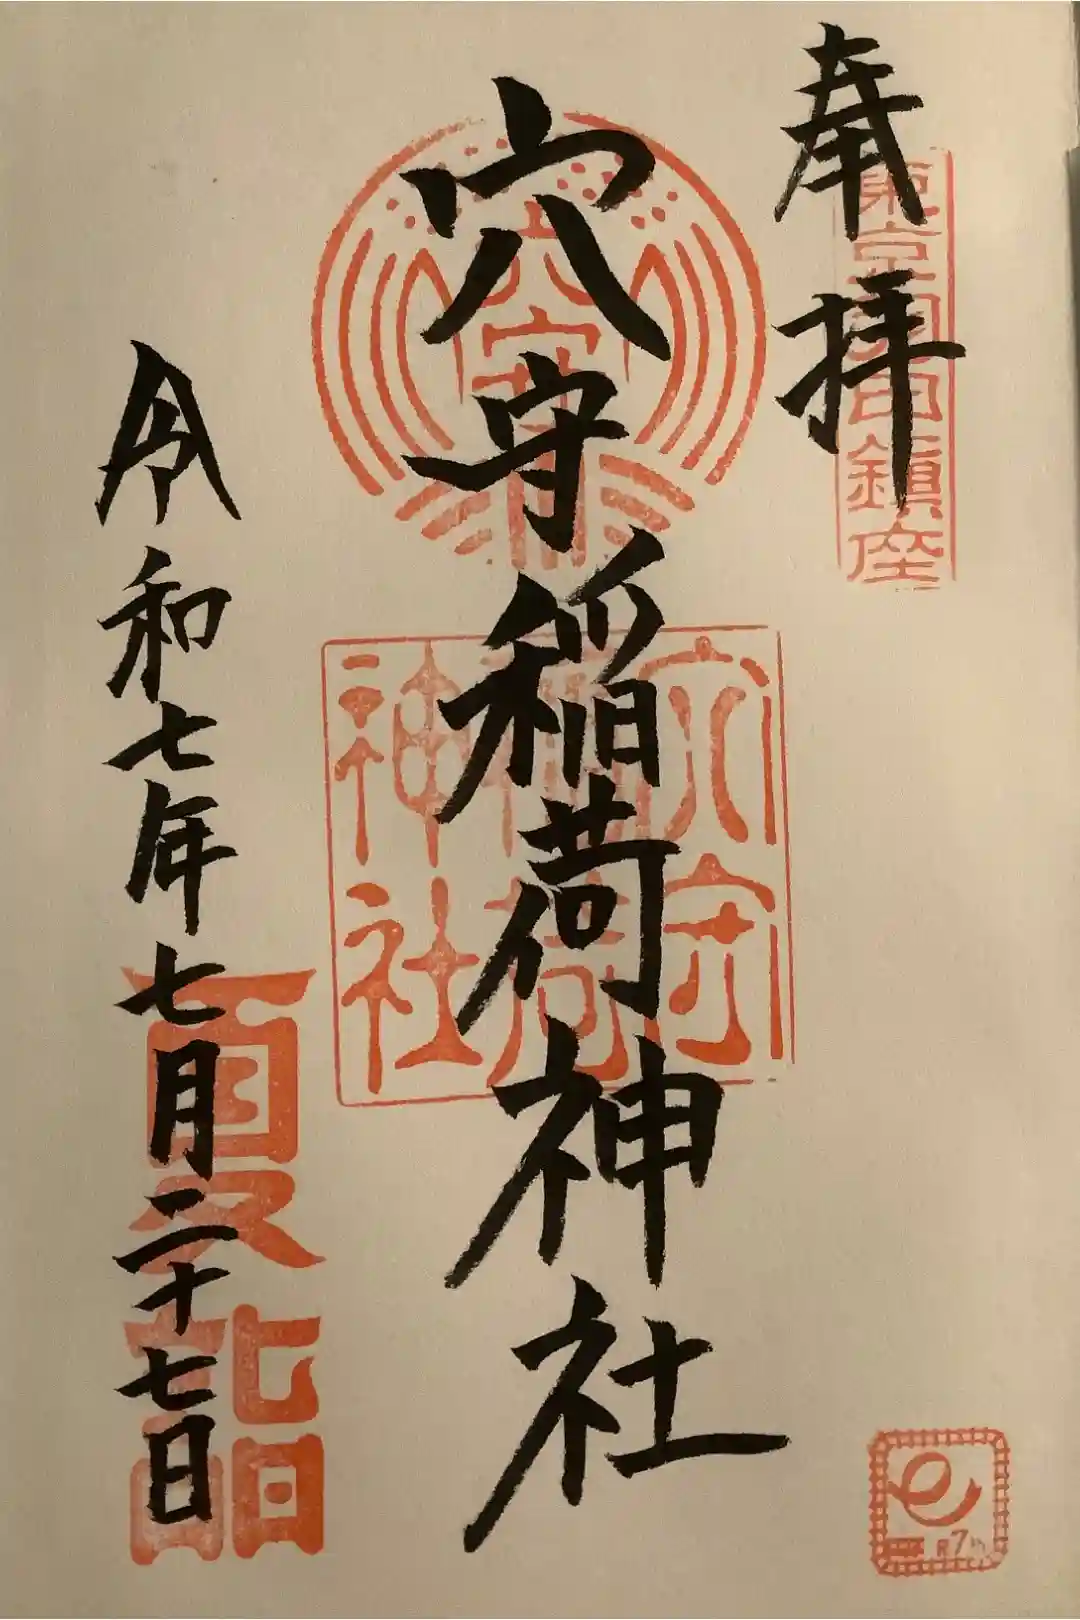 奉拝
東京羽田鎮座
穴守稲荷神社
穴守
稲荷
神社
令和七年七月二十七日
夏詣